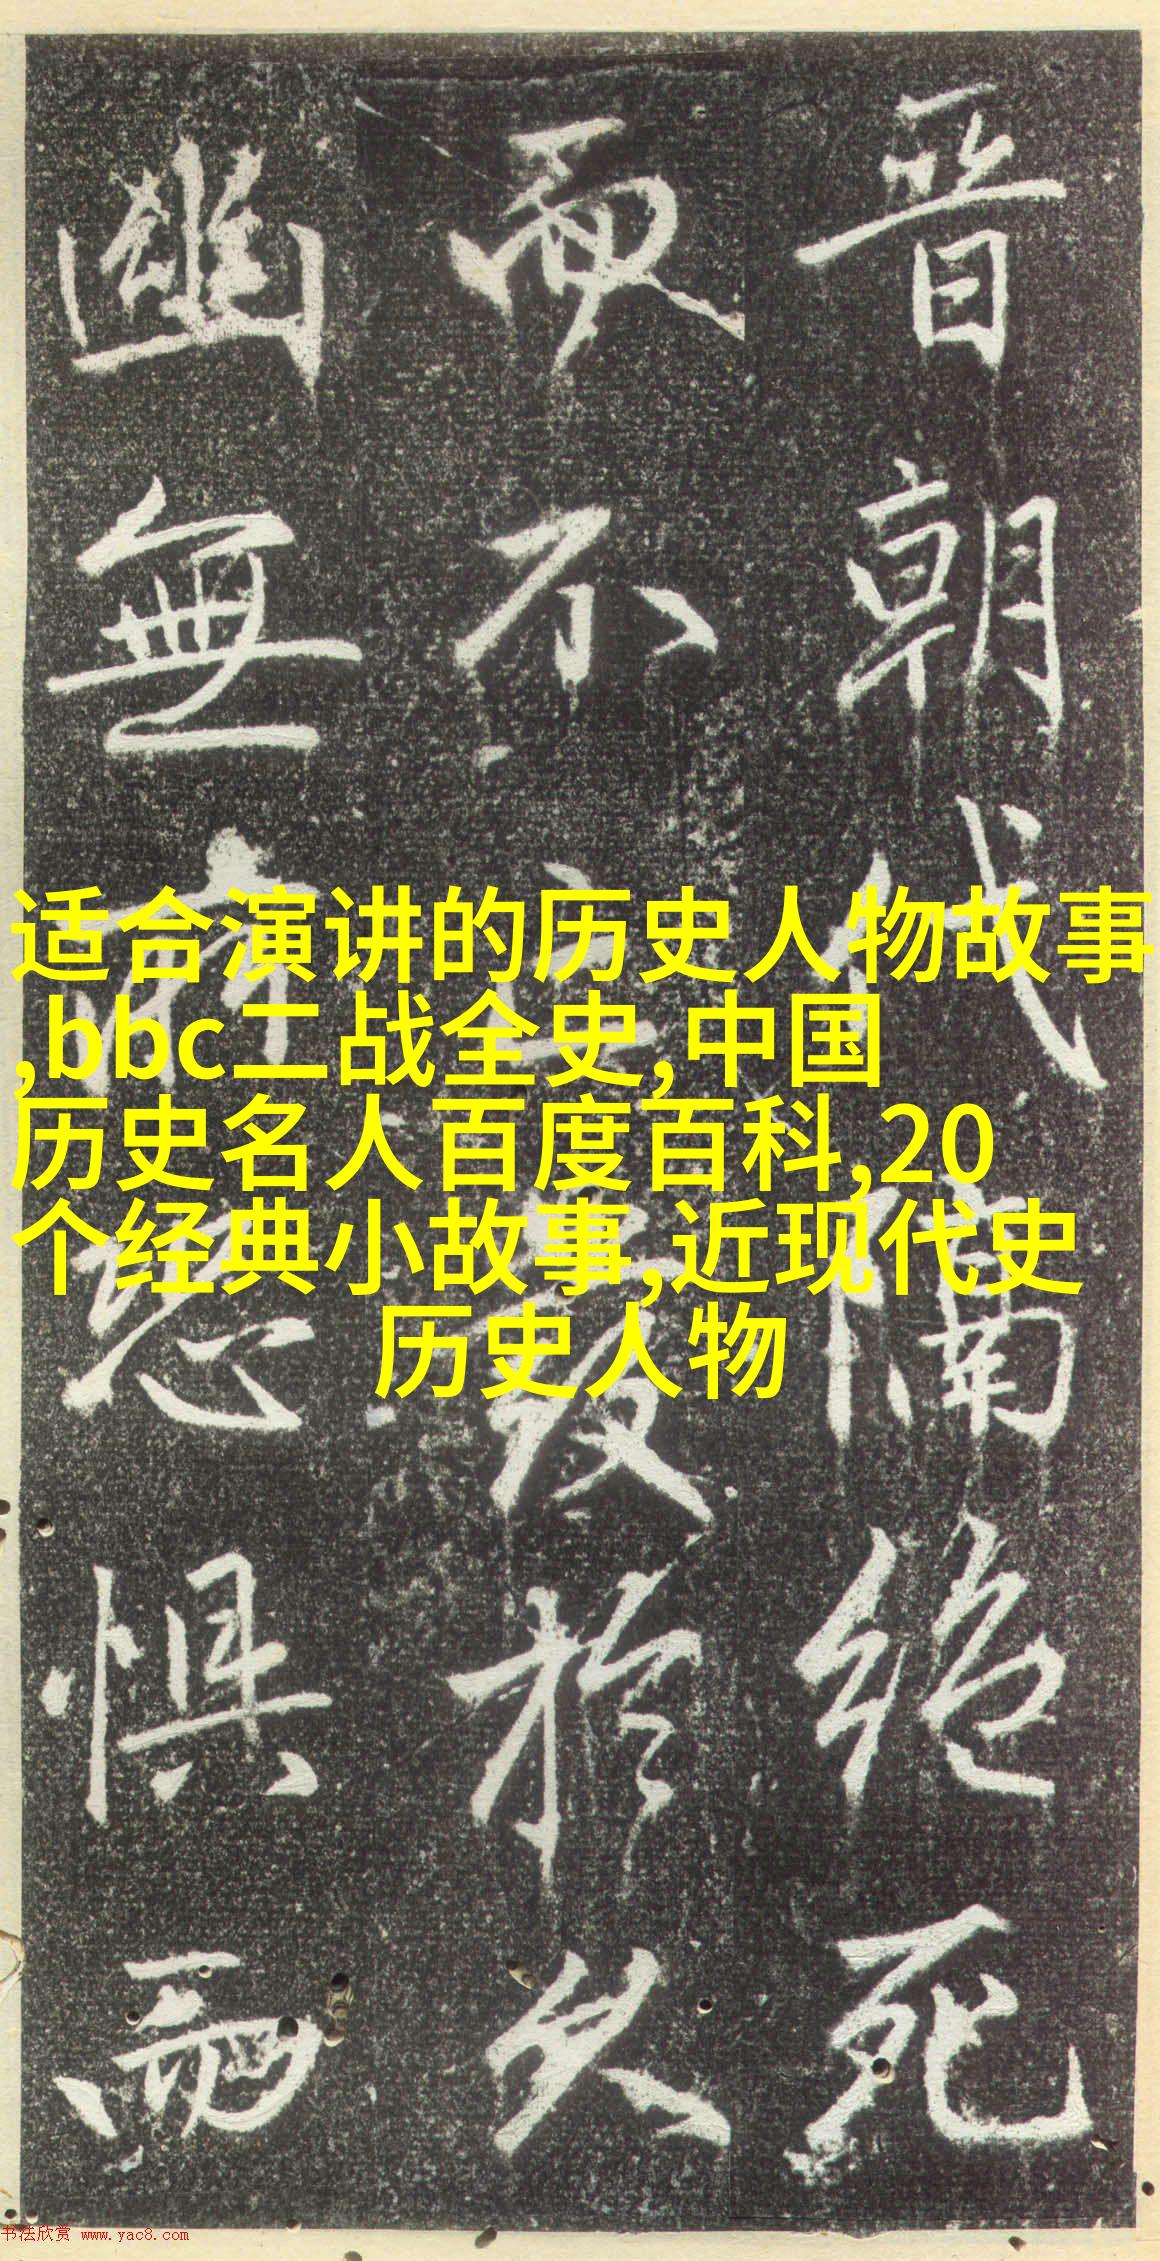 晋朝代隔絕死
而不於久
幽無所懼而
适合演讲的历史人物故事
,bbc二战全史,中国
历史名人百度百科,20
个经典小故事,近现代史
历史人物
书法欣赏 www.yac8.com